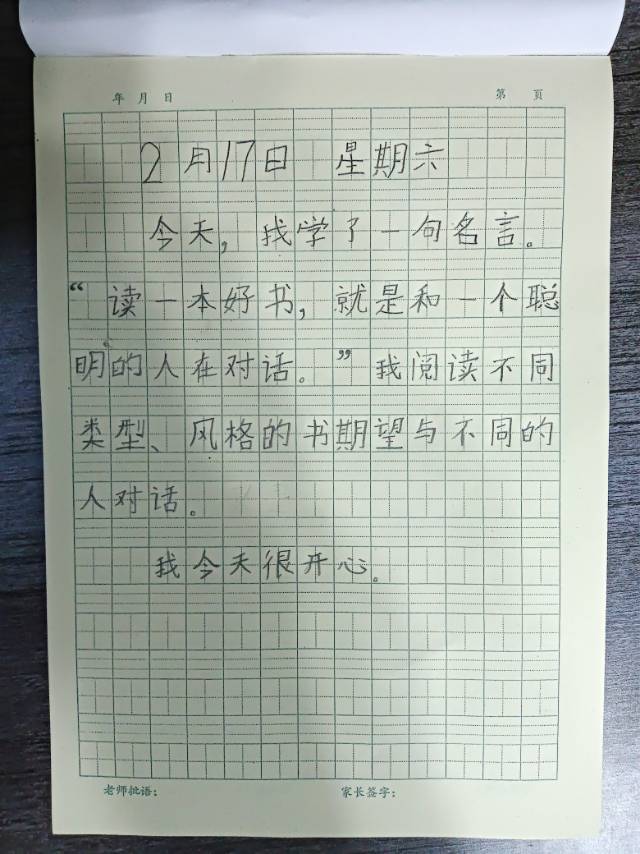 年 月 日 第 页
2月17日 星期六
今天，我学了一句名言。
“读一本好书，就是和一个聪
明的人在对话。”我阅读不同
类型、风格的书期望与不同的
人对话。
我今天很开心。
老师批语： 家长签字：